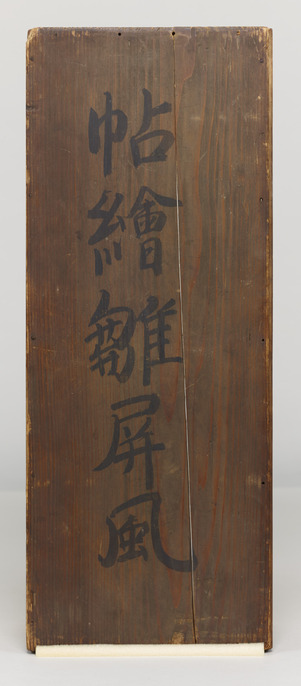 帖繪雛屏風